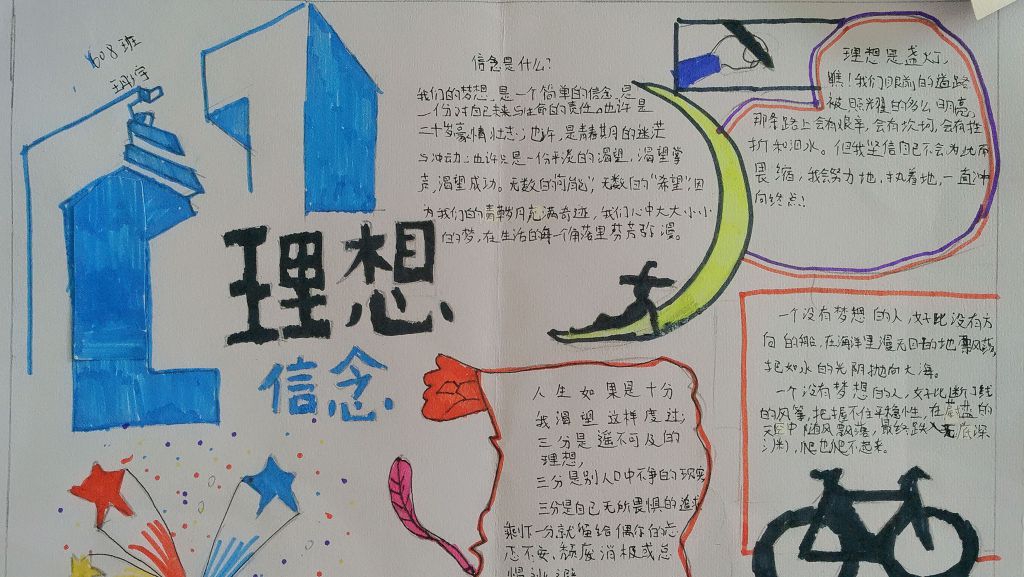 608班
理想
信念
信念是什么?
我们的梦想,是一个简单的信念,是
一份对自己未来与生命的责任。也许是
二十岁豪情壮志;也许,是青春期的迷茫
与冲动;也许只是一份平淡的渴望,渴望掌
声,渴望成功。无数的“可能”,无数的“希望”,因
为我们的青春岁月充满奇迹,我们心中大大小小
的梦,在生活的每一个角落里芬芳弥漫。
理想是盏灯,
瞧!我们眼前的道路
被照耀的多么明亮,
那条路上会有艰辛,会有坎坷,会有挫
折和泪水。但我坚信自己不会为此而
畏缩,我会努力地,执着地,一直冲
向终点!
一个没有梦想的人,好比没有方
向的船,在海洋里漫无目的地飘荡,
把如水的光阴抛向大海。
一个没有梦想的人,好比断了线
的风筝,把握不住平衡性,在蔚蓝的
天空中随风飘落,最终跌入无底深
渊,爬也爬不起来。
人生如果是十分
我渴望这样度过;
三分是遥不可及的
理想,
三分是别人口中不争的现实
三分是自己无所畏惧的追求
剩下一分就留给偶尔的忐
忑不安、颓废消极或总